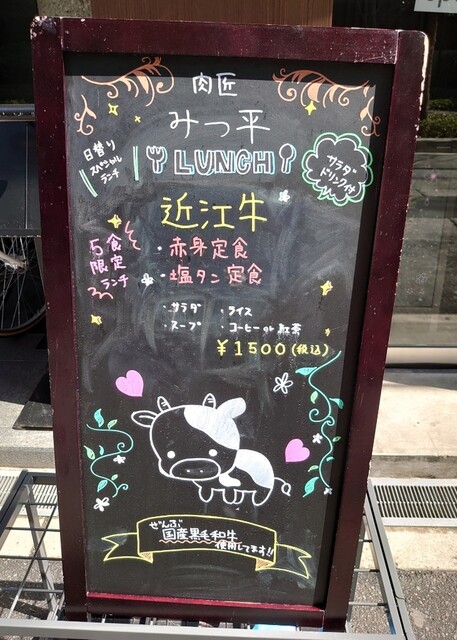 肉匠
みつ平
LUNCH
日替り
スペシャル
ランチ
サラダ
ドリンク付
近江牛
5食
限定
ランチ
・赤身定食
・塩タン定食
・サラダ
・ライス
・スープ
・コーヒーor紅茶
¥1500(税込)
ぜんぶ
国産黒毛和牛
使用してます!!